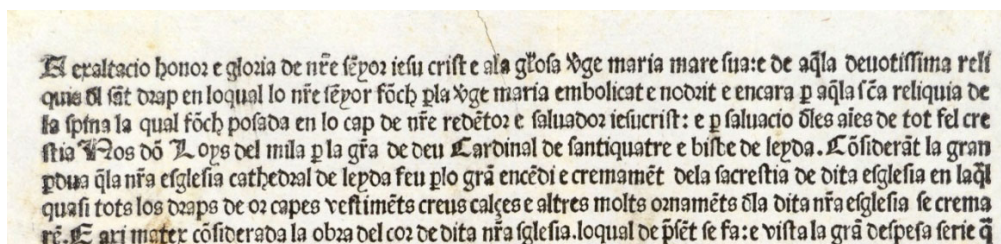 A exaltacio honor e gloria de nr̃e sẽyor iesu crist e ala gl̃osa v̾ge maria mare sua: e de aq̃la deuotissima reli
quie dl̃ sãt drap en loqual lo nr̃e sẽyor fõch ꝑla v̾ge maria embolicat e nodrit e encara ꝑ aq̃la sc̃a reliquia de
la spina la qual fõch posada en lo cap de nr̃e redẽtor e saluador iesucrist: e ꝑ saluacio d̃les aĩes de tot fel cre
stia Nos dõ Loys del mila ꝑ la gr̃a de deu Cardinal de santiquatre e bisbe de leyda. Cõsiderãt la gran
ꝑdua q̃la nr̃a esglesia cathedral de leyda feu ꝑlo grã encẽdi e cremamẽt dela sacrestia de dita esglesia en laq̃l
quasi tots los draps de or capes vestimẽts creus calçes e altres molts ornamẽts d̃la dita nr̃a esglesia se crema
rẽ. E axi matex cõsiderada la obra del cor de dita nr̃a sglesia. loqual de p̃sẽt se fa: e vista la grã despesa serie q̃